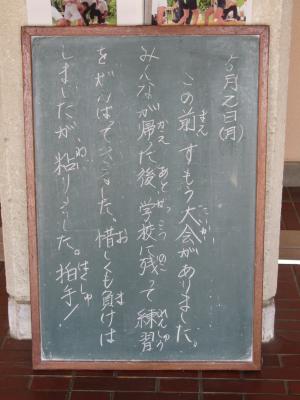 5月2日(月)
この前すもう大会がありました。
みんなが帰った後、学校に残って練習
をがんばってきました。惜しくも負けは
しましたが、粘りました。拍手!